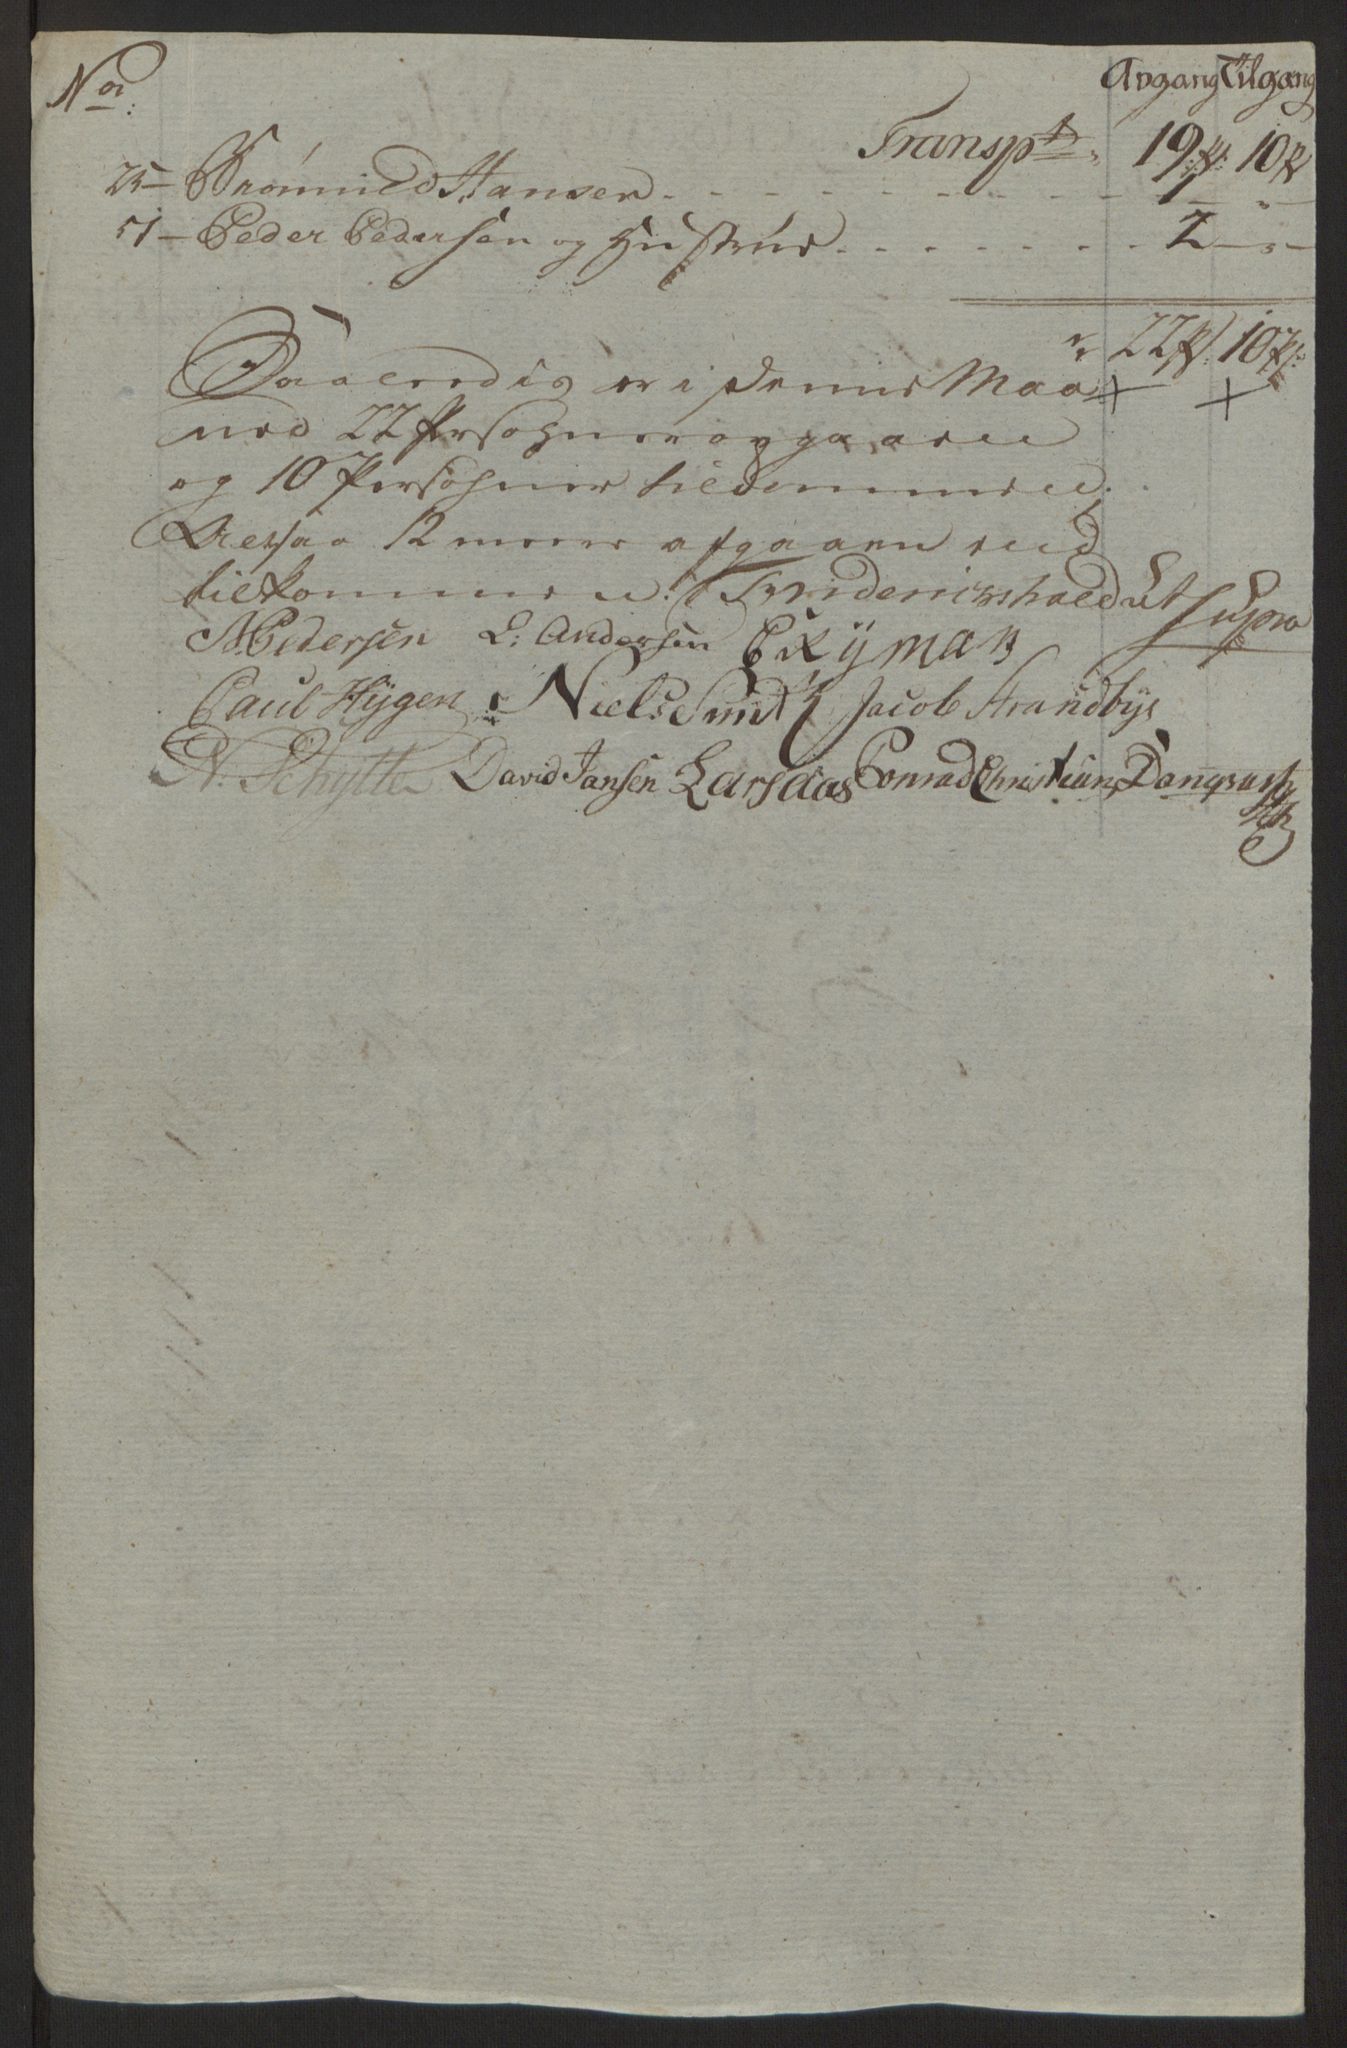 No: Avgang Tilgang
Transpt " 19 P: 10 P
25 - Hansen 1 - " -
51 - Peder Pedersen og Hustrue 2 - " -
" 22 P: 10 P:
Saaleedis er i denne Maa
ned 22 Persohner avgaaen
og 10 Persohner tilkommen.
Altsaa 12 meere afgaaen end
tilkommen. Friderichshald ut Supra
APedersen L: Andersen
Paul Hÿgen Niels Smit Jacob Strandbÿe
N. Schytte David Jansen Lars Aas Conrad Christian